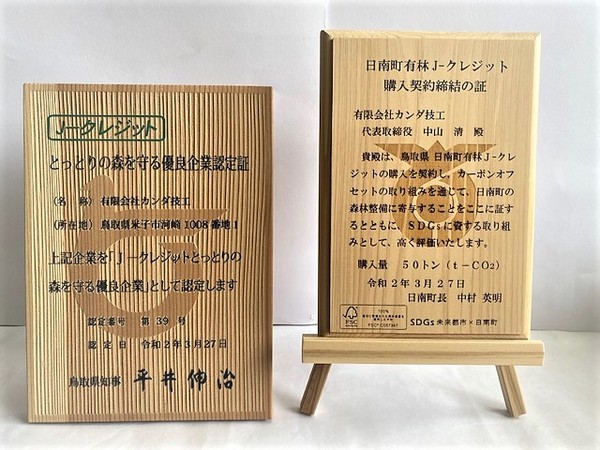 J-クレジット
とっとりの森を守る優良企業認定証
(名 称) 有限会社カンダ技工
(所在地) 鳥取県米子市河崎1008番地1
上記企業を「J-クレジットとっとりの
森を守る優良企業」として認定します
認定番号 第39号
認定日 令和2年3月27日
鳥取県知事 平井伸治
日南町有林J-クレジット
購入契約締結の証
有限会社カンダ技工
代表取締役 中山 清 殿
貴殿は、鳥取県 日南町有林J-クレ
ジットの購入を契約し、カーボンオフ
セットの取り組みを通じて、日南町の
森林整備に寄与することをここに証す
るとともに、SDGsに資する取り組
みとして、高く評価いたします。
購入量 50トン(t-CO2)
令和2年3月27日
日南町長 中村 英明
FSC
100%
SDGs未来都市×日南町